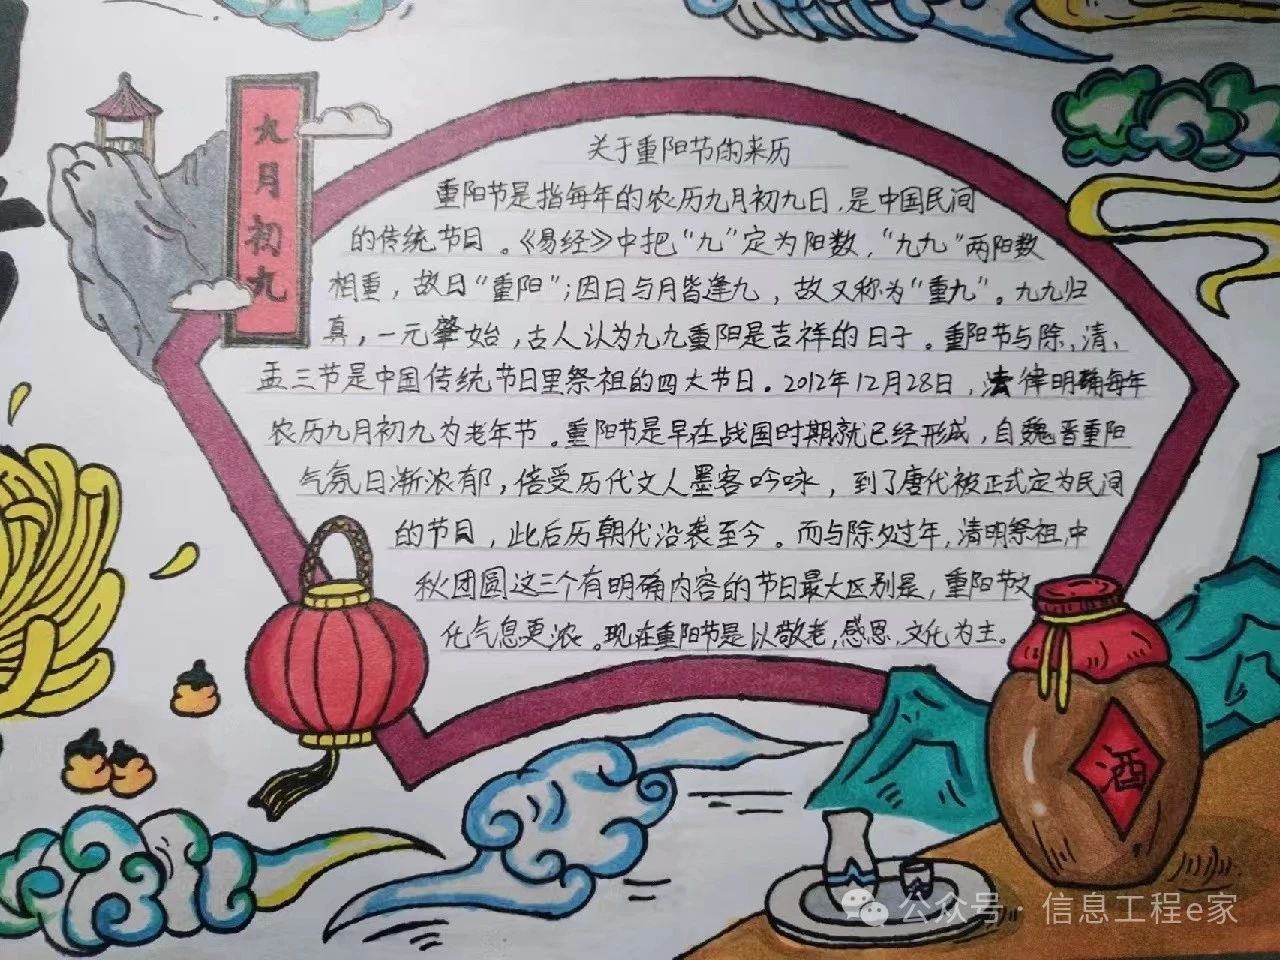 九月初九
关于重阳节的来历
重阳节是指每年的农历九月初九日，是中国民间
的传统节日。《易经》中把“九”定为阳数，“九九”两阳数
相重，故曰“重阳”；因日与月皆逢九，故又称为“重九”。九九归
真，一元肇始，古人认为九九重阳是吉祥的日子。重阳节与除、清、
盂三节是中国传统节日里祭祖的四大节日。2012年12月28日，法律明确每年
农历九月初九为老年节。重阳节是早在战国时期就已经形成，自魏晋重阳
气氛日渐浓郁，倍受历代文人墨客吟咏，到了唐代被正式定为民间
的节日，此后历朝代沿袭至今。而与除夕过年，清明祭祖，中
秋团圆这三个有明确内容的节日最大区别是，重阳节文
化气息更浓。现在重阳节是以敬老，感恩，文化为主。
酒
公众号·信息工程e家